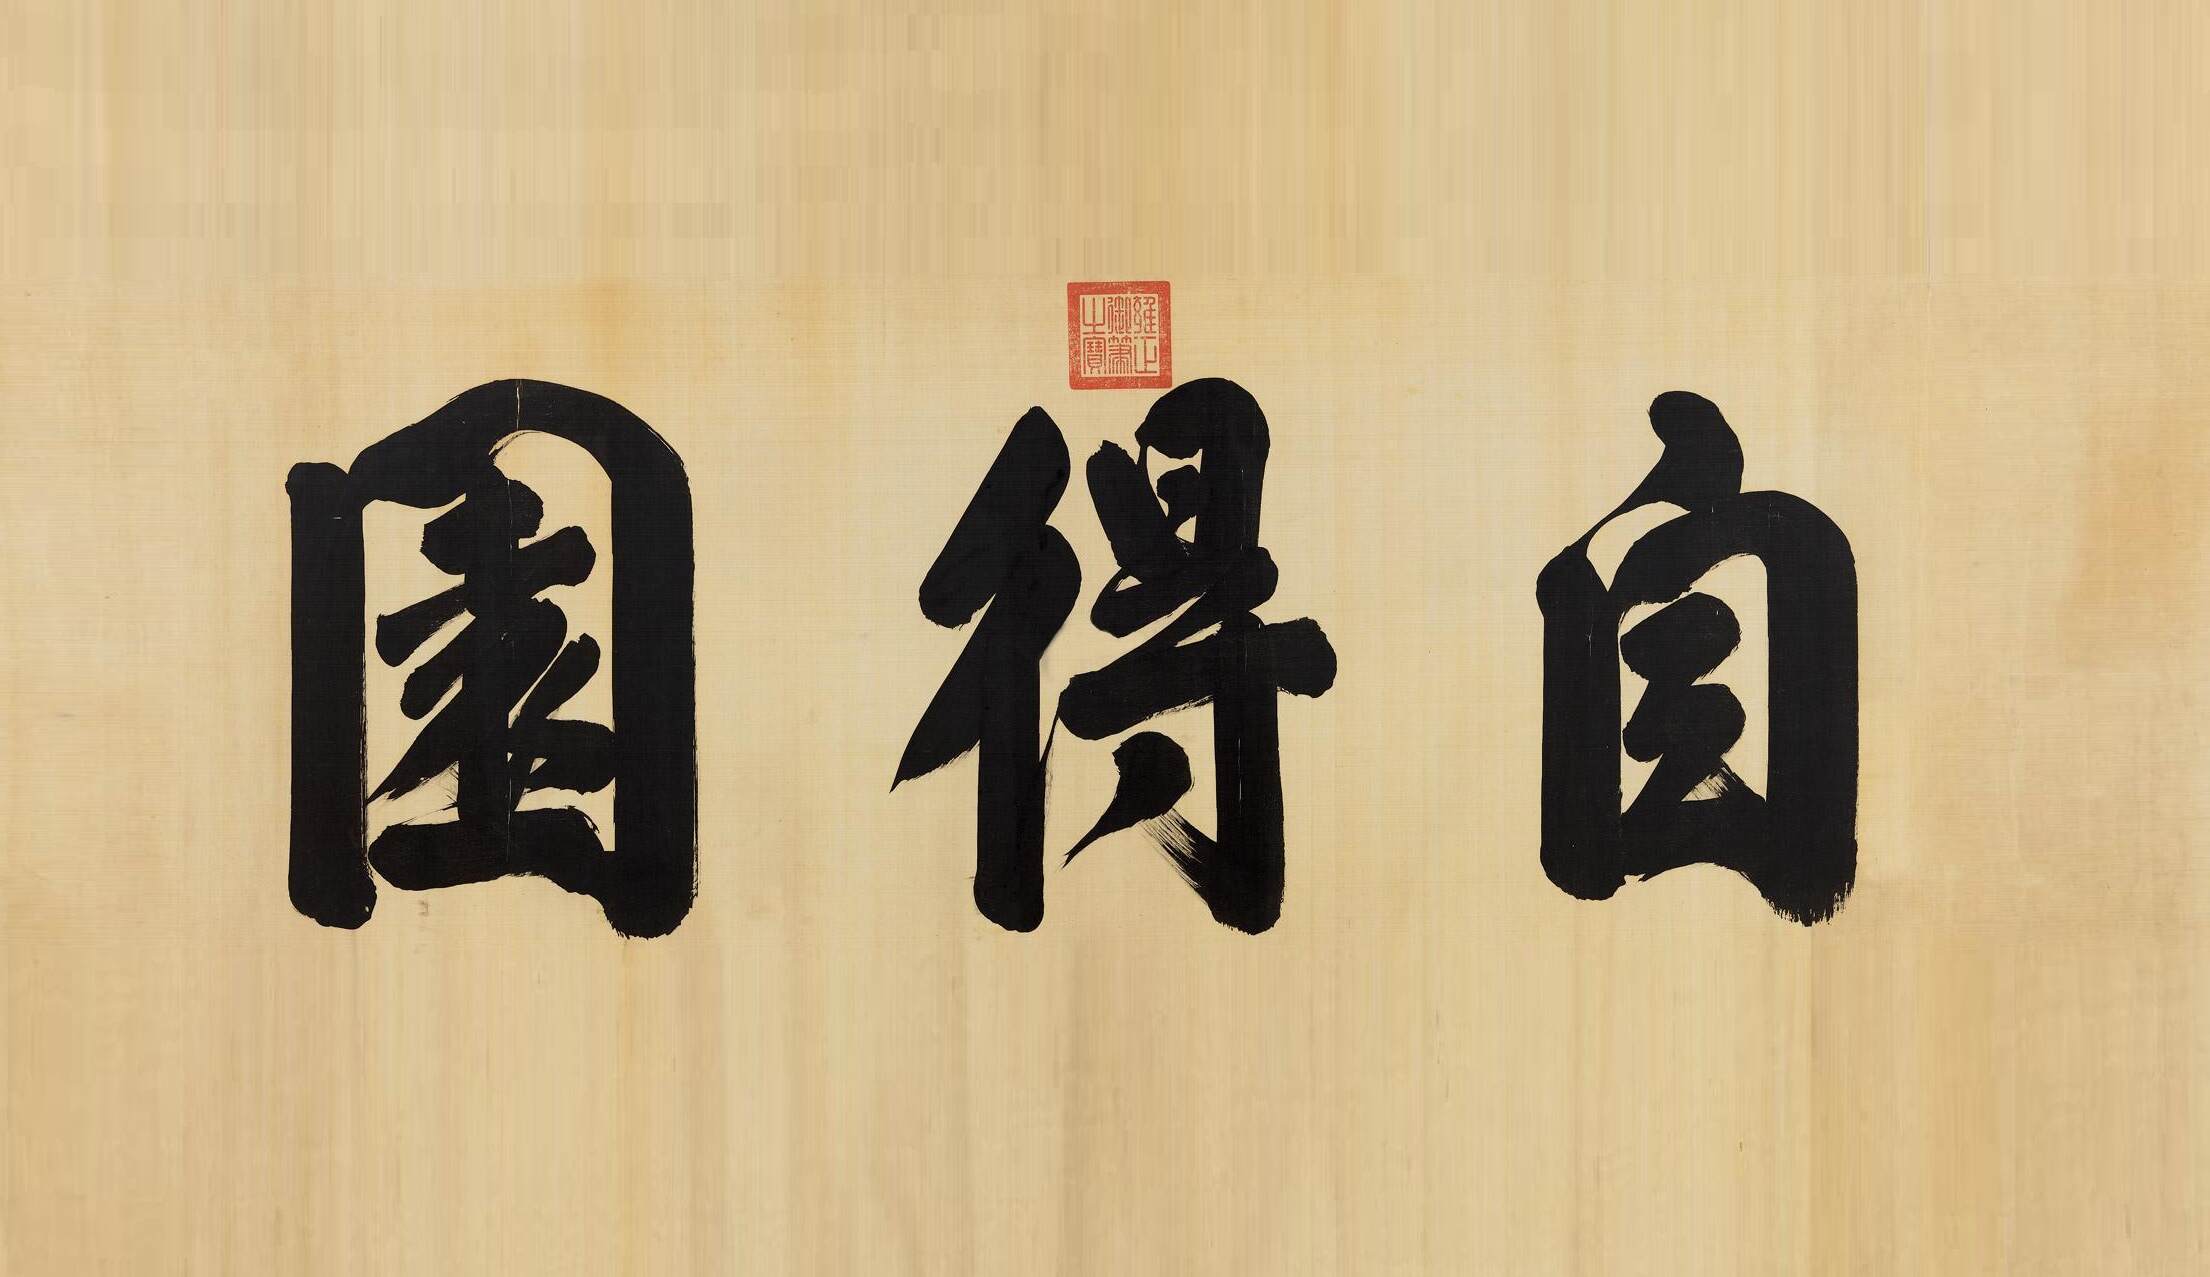 自得園
雍正御筆之寶